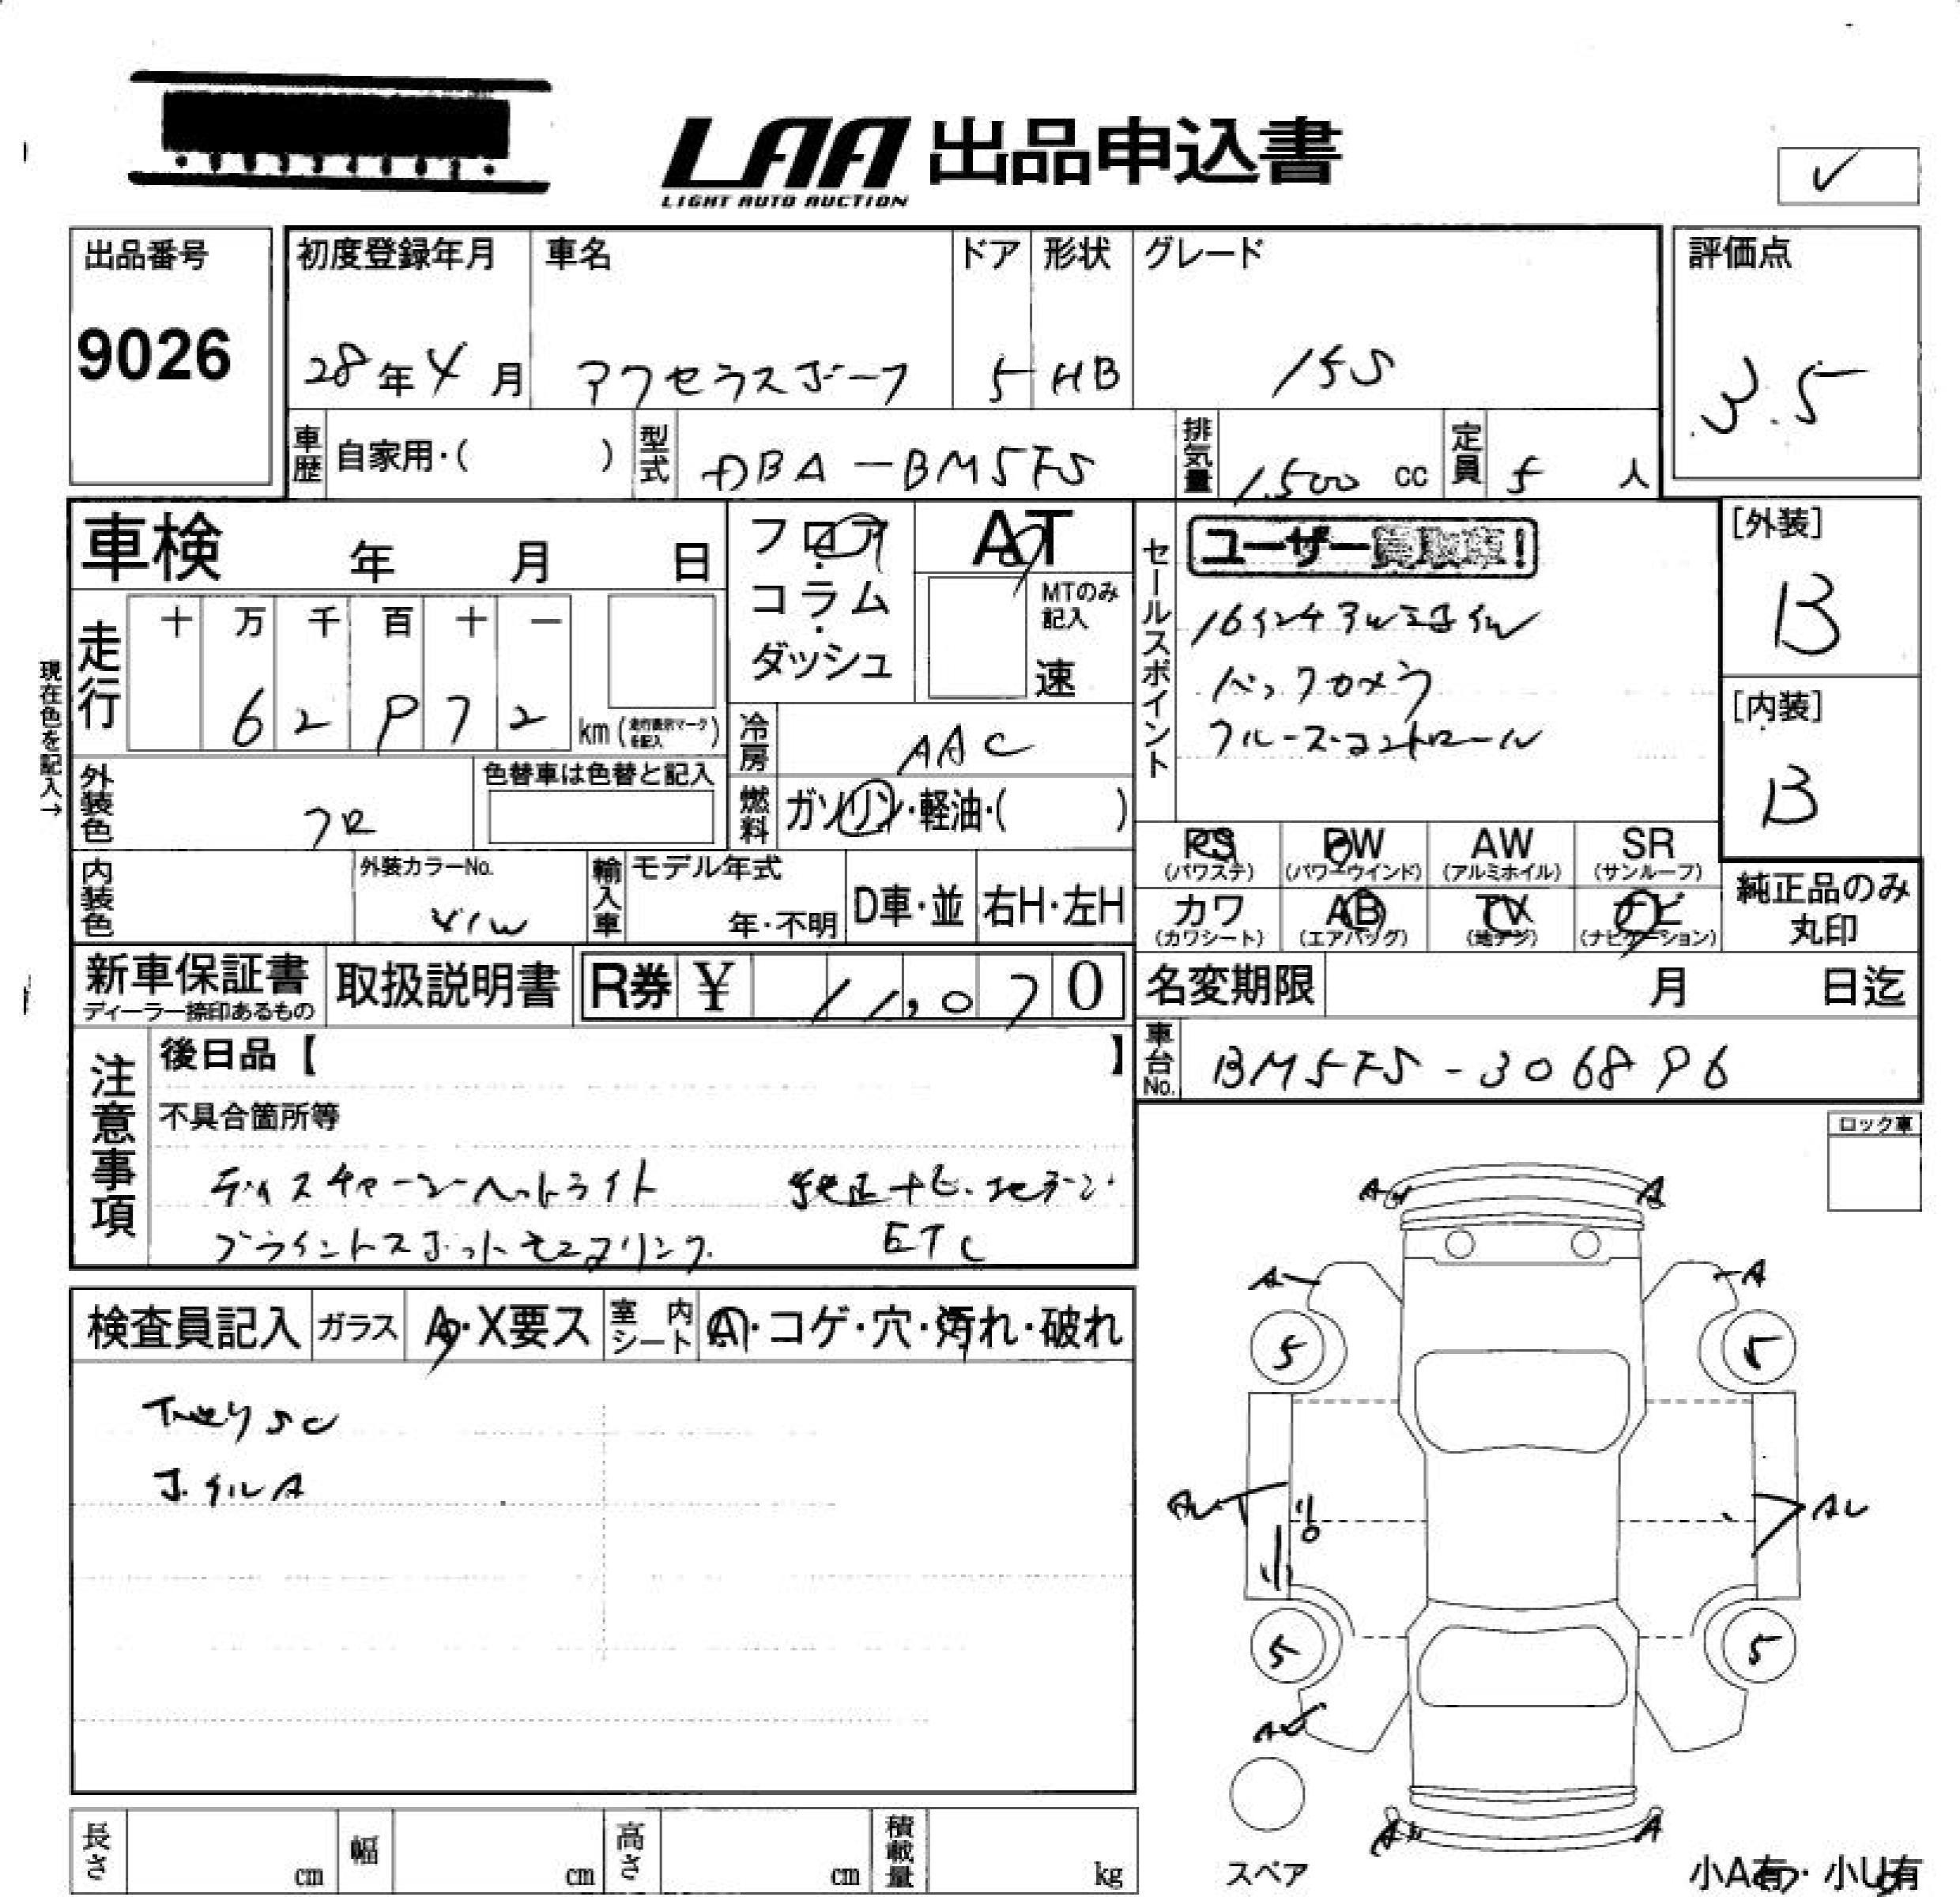 LAA 出品申込書
LIGHT AUTO AUCTION
✓
出品番号 9026
初度登録年月 28年4月
車名 アクセラスポーツ
ドア 5
形状 HB
グレード 15S
評価点 3.5
車歴 自家用・( )
型式 DBA-BM5FS
排気量 1.500 cc
定員 5 人
車検 年 月 日
フロア・コラム・ダッシュ
AT
MTのみ記入
速
セールスポイント
ユーザー買取車!
16インチアルミホイル
バックカメラ
クルーズ・コントロール
[外装] B
[内装] B
現在色を記入→
走行 十 万 千 百 十 一
6 2 9 7 2 km (走行表示マークを記入)
冷房 AAC
外装色 クロ
色替車は色替と記入
燃料 ガソリン・軽油・( )
PS (パワステ)
PW (パワーウインド)
AW (アルミホイル)
SR (サンルーフ)
内装色
外装カラーNo.
輸入車 モデル年式 年・不明
D車・並
右H・左H
カワ (カワシート)
AB (エアバッグ)
TV (地デジ)
ナビ (ナビゲーション)
純正品のみ丸印
新車保証書 ディーラー捺印あるもの
取扱説明書
R券 ¥ 11,070
名変期限 月 日迄
車台No. BM5FS-306896
注意事項
後日品【 】
不具合箇所等
ディスチャージヘットライト 純正ナビ・地デジ
ブライントスポットモニタリング. ETC
ロック車
検査員記入
ガラス A・X要ス
室内シート A・コゲ・穴・汚れ・破れ
ホイルA
A A
A A
5 5
5 5
A A
長さ cm
幅 cm
高さ cm
積載量 kg
スペア
小A有・小U有